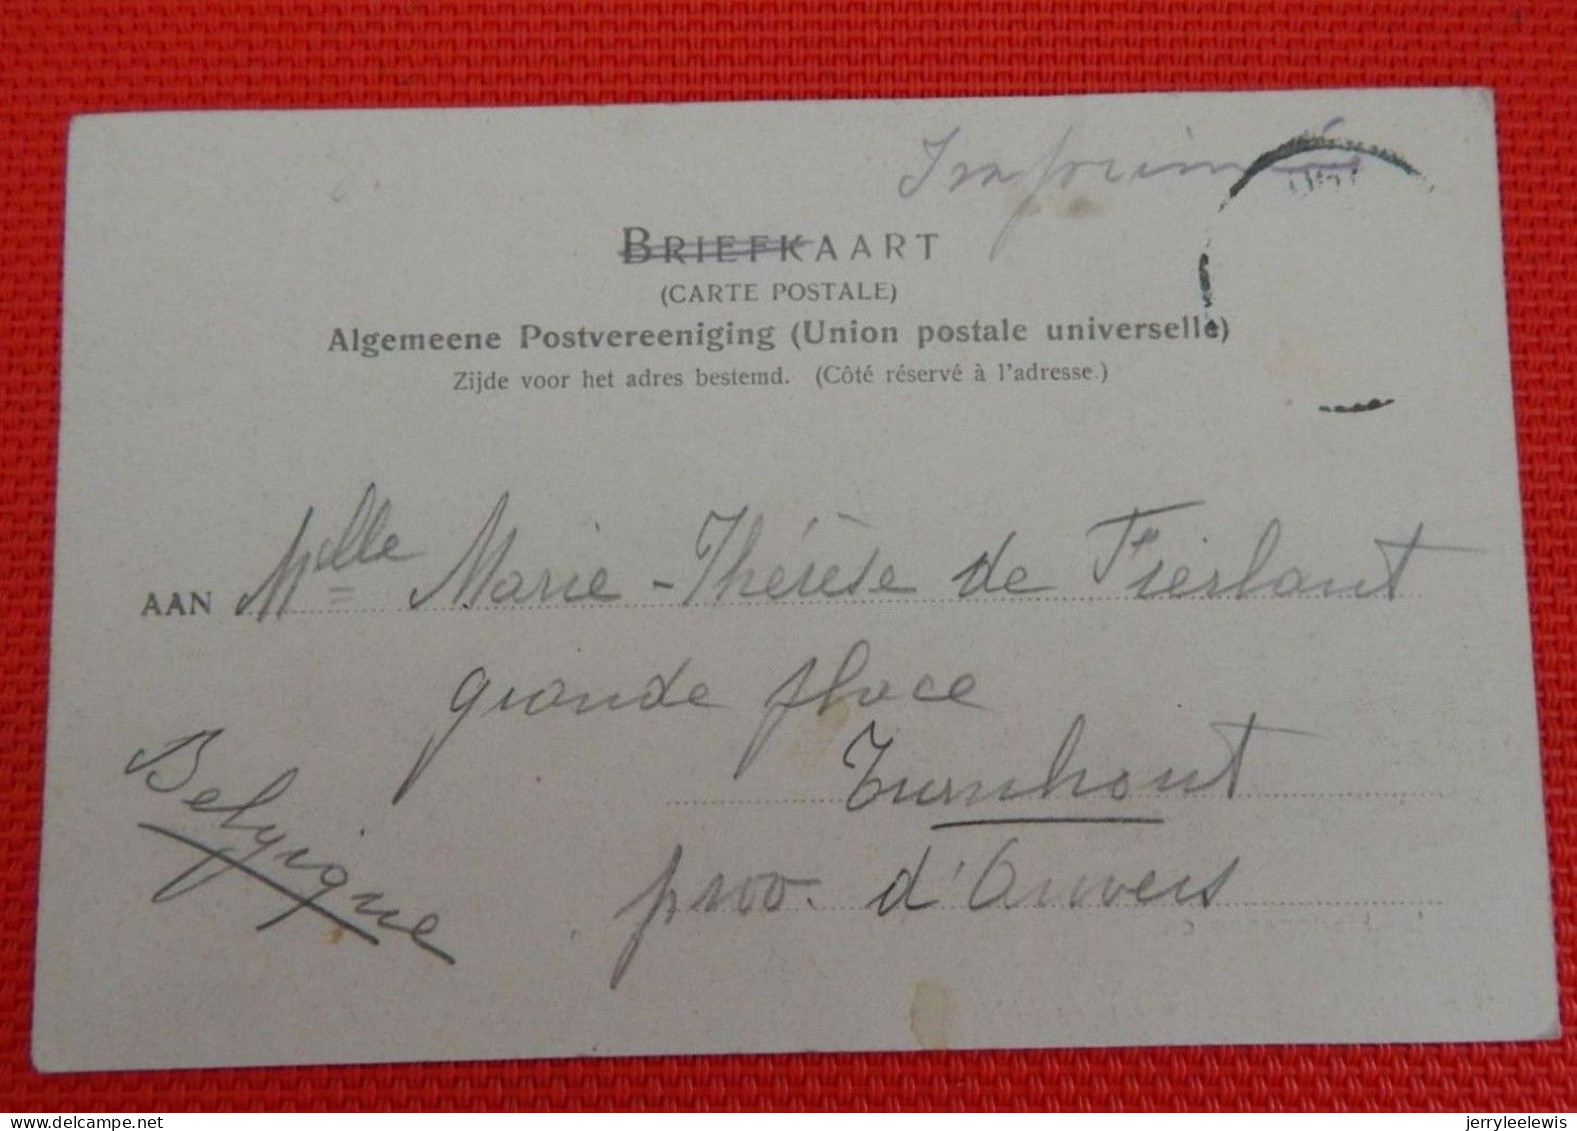 Imprimé
BRIEFKAART
(CARTE POSTALE)
Algemeene Postvereeniging (Union postale universelle)
Zijde voor het adres bestemd. (Côté réservé à l'adresse.)
AAN Melle Marie-Thérèse de Fierlant
grande place
Turnhout
Belgique
prov. d'Anvers
delcampe.net
jerryleelewis